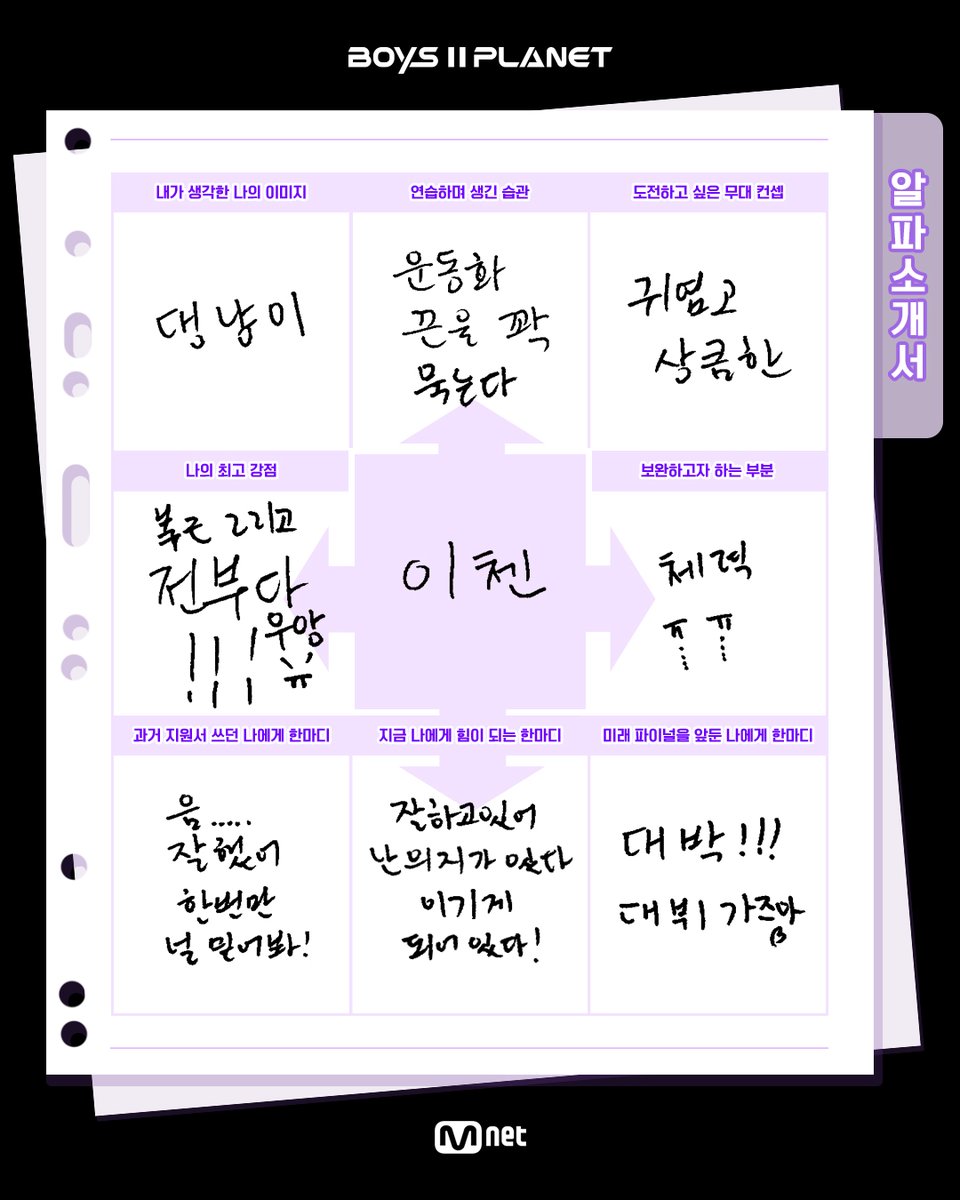 BOYS II PLANET
알파소개서
내가 생각한 나의 이미지
댕냥이
연습하며 생긴 습관
운동화
끈을 꽉
묶는다
도전하고 싶은 무대 컨셉
귀엽고
상큼한
나의 최고 강점
복근 그리고
전부다
!!! 우앙
ㅠ
이첸
보완하고자 하는 부분
체력
ㅠㅠ
과거 지원서 쓰던 나에게 한마디
음.....
잘했어
한번만
널 믿어봐!
지금 나에게 힘이 되는 한마디
잘하고있어
난 의지가 있다
이기게
되어 있다!
미래 파이널을 앞둔 나에게 한마디
대박!!!
데뷔 가즈아
Mnet